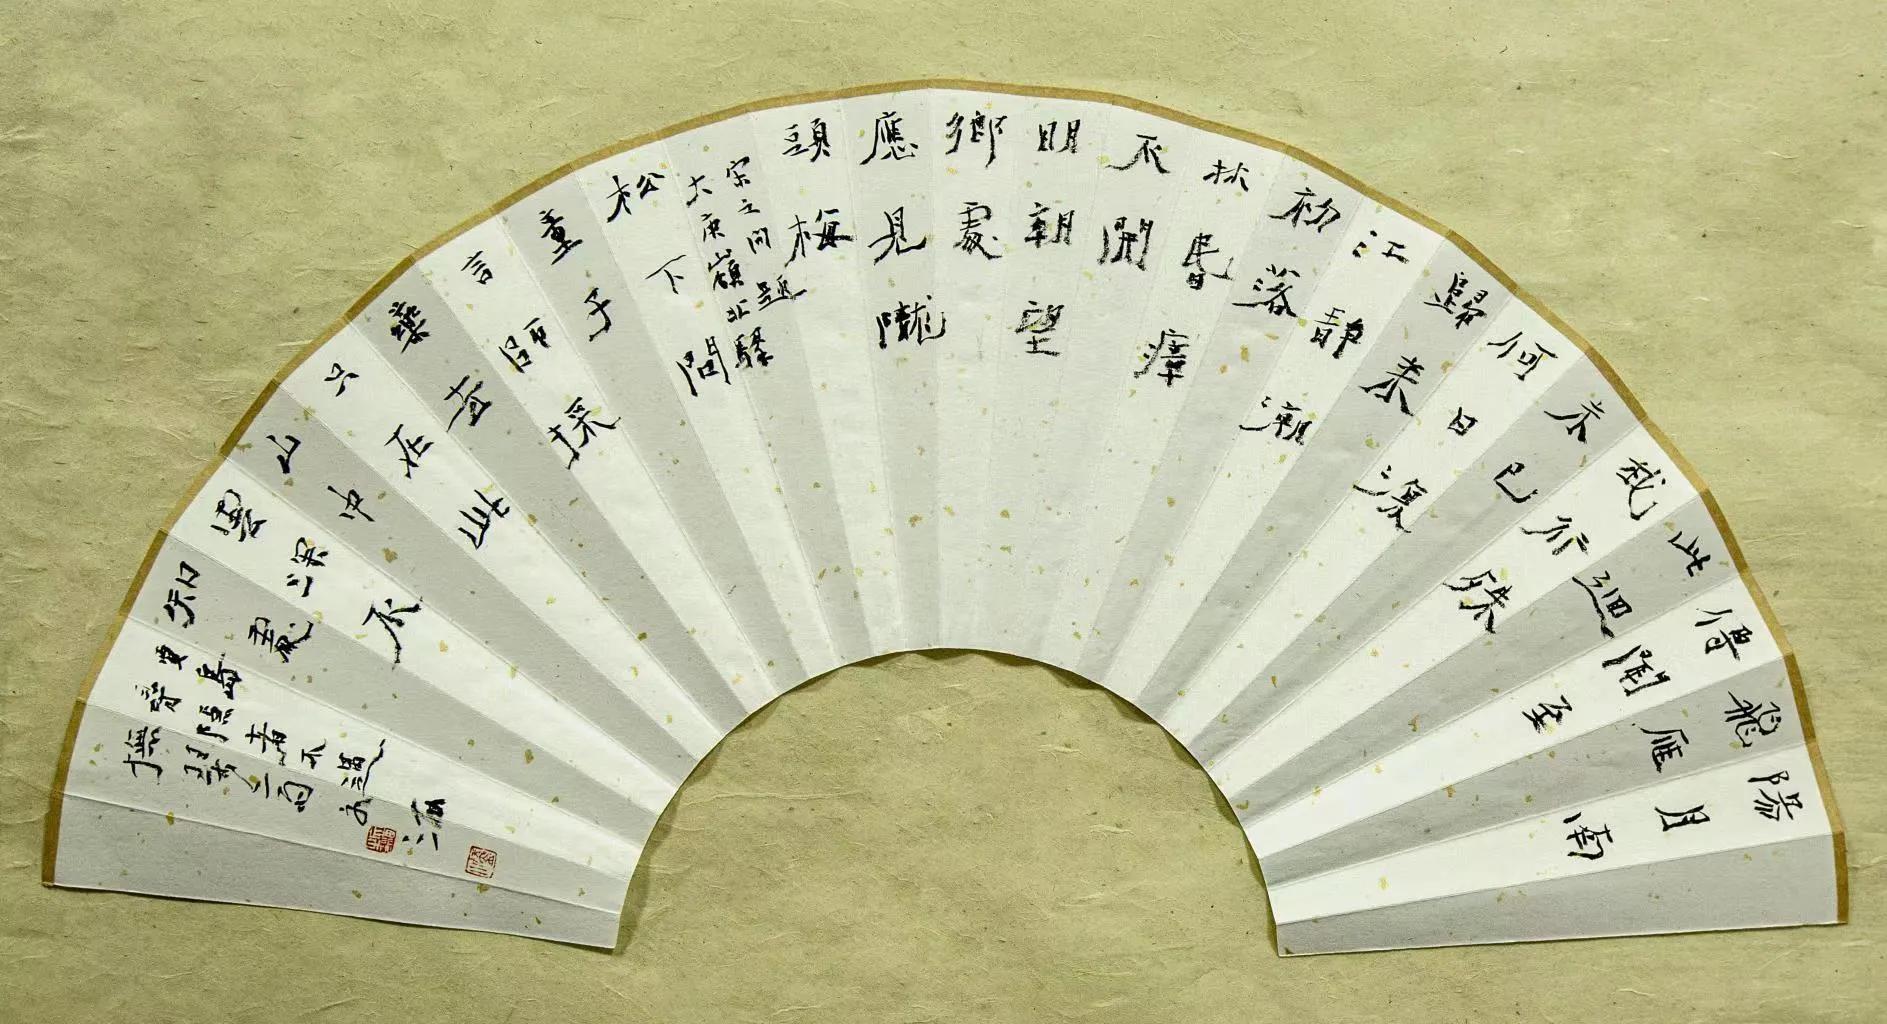 陽月南
飛雁
傳聞至
此迴
我行殊
未已
何日復
歸来
江靜潮
初落
林昏瘴
不開
明朝望
鄉處
應見隴
頭梅
宋之問題
大庾嶺北驛
松下問
童子
言師採
藥去
只在此
山中
雲深不
知處
賈島
尋隱者不遇
撫琴